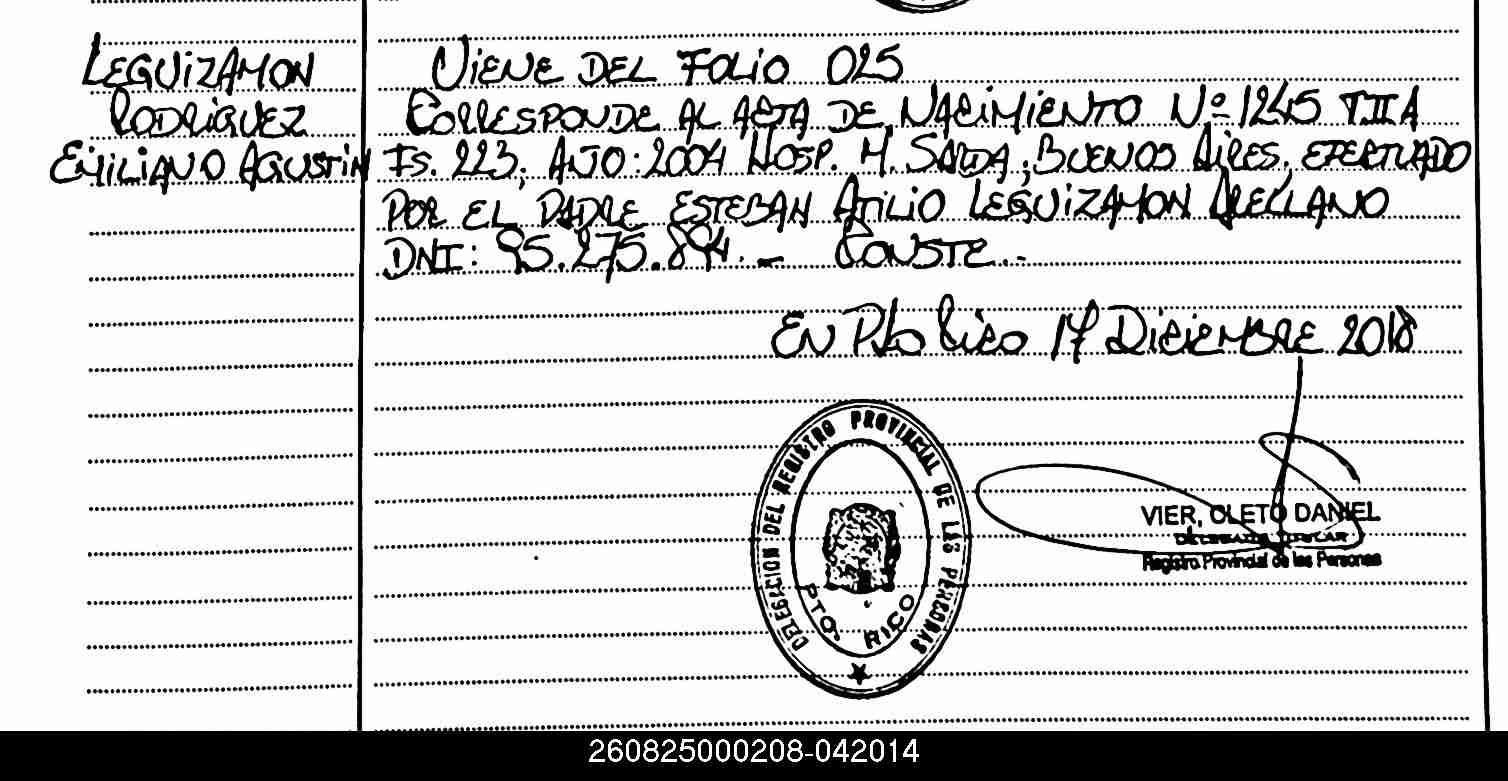 LEGUIZAMON
RODRIGUEZ
EMILIANO AGUSTIN
VIENE DEL FOLIO 025
CORRESPONDE AL ACTA DE NACIMIENTO Nº 1245 TIIA
FS. 223; AÑO: 2004 HOSP. M. SARDA; BUENOS AIRES. EFECTUADO
POR EL PADRE ESTEBAN ATILIO LEGUIZAMON ARELLANO
DNI: 95.275.894.- CONSTE.-
EN Pto Rico 17 DICIEMBRE 2018
DELEGACION DEL REGISTRO PROVINCIAL DE LAS PERSONAS
PTO. RICO
VIER, CLETO DANIEL
DELEGADO TITULAR
Registro Provincial de las Personas
260825000208-042014